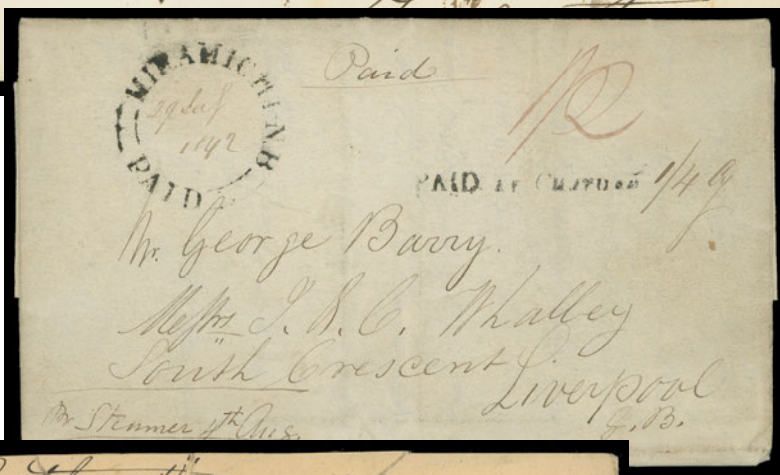 Paid
MIRAMICHI N.B
1842
PAID
1/2
PAID AT 1/4
Mr. George Barry.
Messrs J. & C. Whalley
South Crescent
Liverpool
G. B.
Pr Steamer 4th Aug.